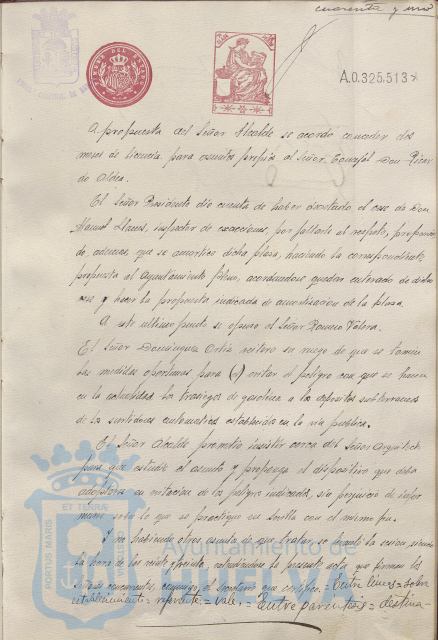 cuarenta y uno
A.0.325.513
A propuesta del Señor Alcalde se acordó conceder dos
meses de licencia para asuntos propios al Señor Concejal Don
de Aldea.
El Señor Presidente dió cuenta de haber decretado el cese de Don
Manuel Llanes, inspector de exacciones, por faltarle al respeto,
además, que se amortice dicha plaza, haciendo la correspondiente
propuesta al Ayuntamiento Pleno, acordándose quedar enterado de dicho
cese y hacer la propuesta indicada de amortización de la plaza.
A este último punto se opuso el Señor Romeu Tólera.
El Señor Domínguez Ortiz reiteró su ruego de que se tomen
las medidas oportunas para (-) evitar el peligro con que se hacen
en la actualidad los trasiegos de gasolina a los depósitos subterráneos
de los surtidores automáticos establecidos en la vía pública.
El Señor Alcalde prometió insistir cerca del Señor Arquitecto
para que estudie el asunto y proponga el dispositivo que deba
adoptarse en evitación de los peligros indicados, sin perjuicio de
lo que se practique en Sevilla con el mismo fin.
Y no habiendo otros asuntos de que tratar, se levantó la sesión, siendo
la hora de las veinte y extendiéndose la presente acta que firman los
Señores concurrentes, conmigo, el Secretario que certifico. = Entre líneas = sobre
establecimiento = referente = vale. = Entre paréntesis = destina-
PORTUS MARIS ET TERRAE
Ayuntamiento de
HUELVA